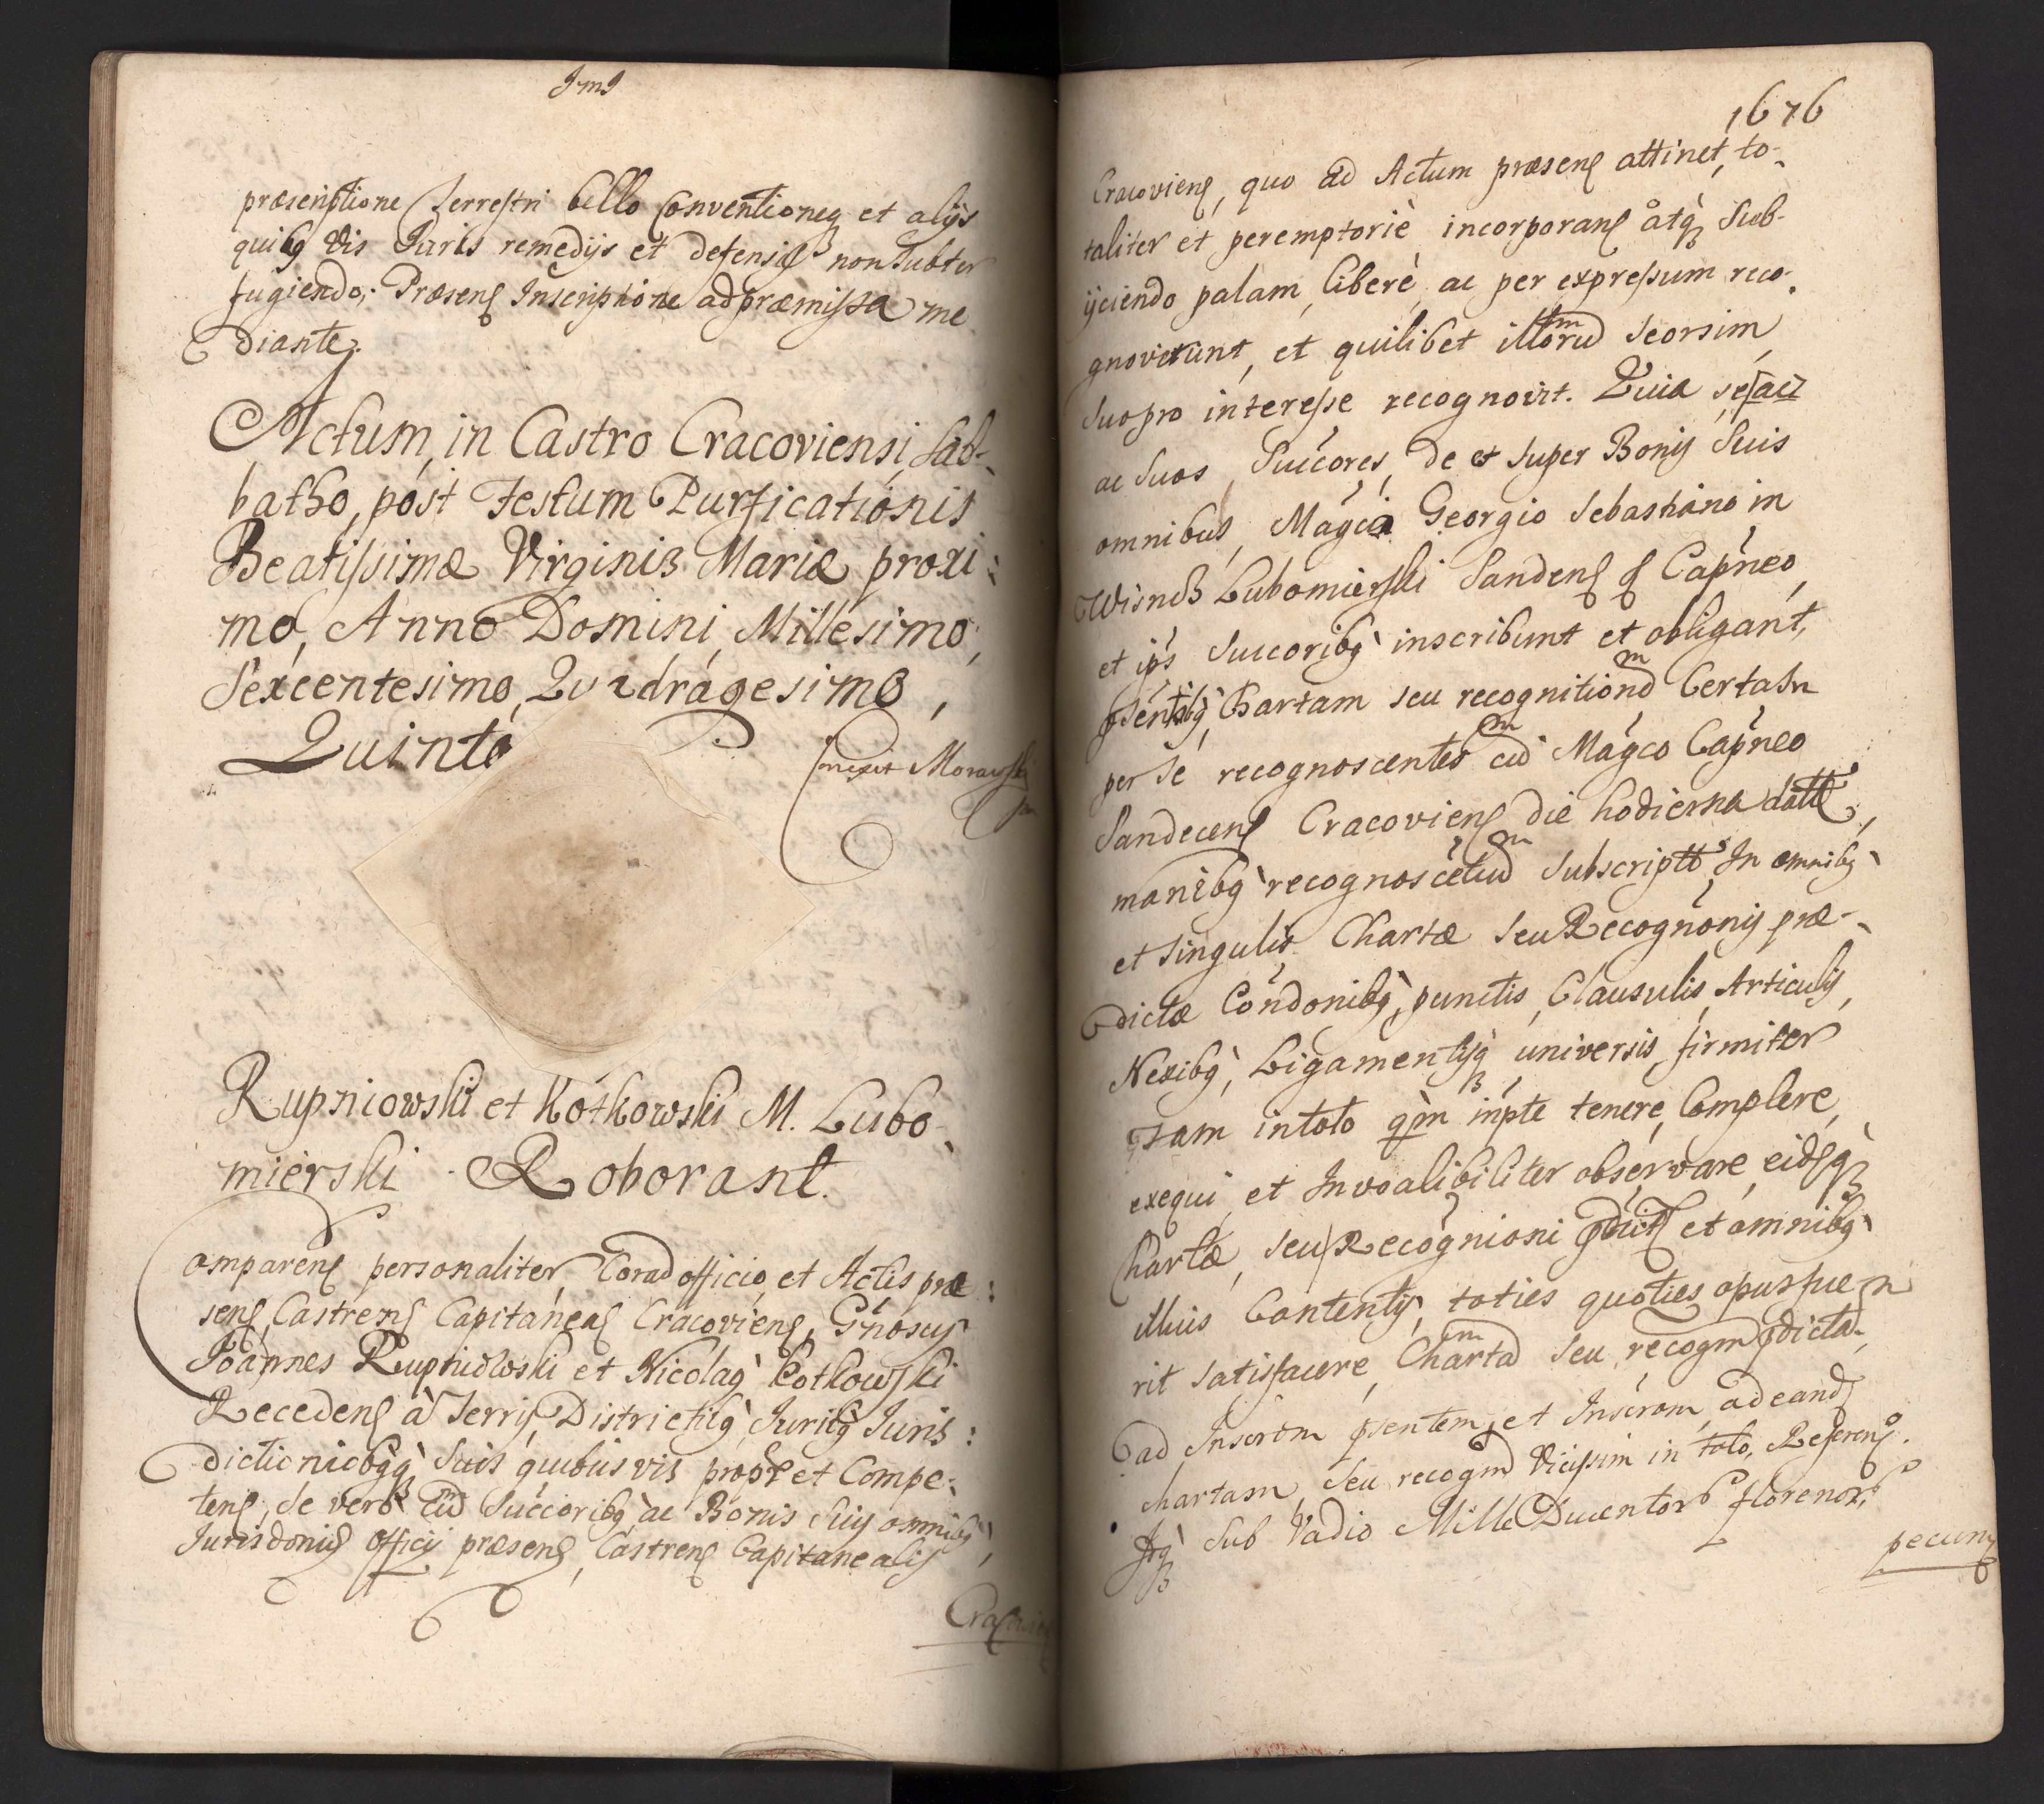 præscriptione Terrestri bello Conventioneq et alijs
quibq vis Juris remedijs et defensis non subter
fugiendo; Præsenſ Inscriptione ad præmissa me
diante.
Actum in Castro Cracoviensi, Sab-
batho, post Festum Purificationis
Beatissimæ Virginis Mariæ proxi:
mo, Anno Domini, Millesimo,
Sexcentesimo, Quadragesimo,
Quinto
Correxit Morawski
Rupniowski et Kotkowski M. Lubo-
mierski Roborant.
omparenſ personaliter Corad officio, et Actis præ:
senſ, Castrenſ Capitáneaſ Cracovienſ, Gńosuſ
Joannes Rupniowski et Nicolaq Kotkowski
Recedenſ à Terriſ, Districtibq, Juribq Juris:
dictionibqq Suis quibusvis propr et Compe:
tenſ, Se vero Cud Succoribq, ac Bonis Suis omnibq,
Jurisdoniſ officij præsenſ, Castrenſ Capitanealiſ
Cracovien
1676
Cracovienſ, quo ad Actum præsenſ attinet, to-
taliter et peremptoriè incorporanſ átq Sub-
ijciendo palam, liberè, ac per expressum reco-
gnoverunt, et quilibet illorud seorsim,
suo pro interesse recognovit. Quia se
ac Suos, Succores, de et super Bonis Suis
omnibus, Mágco Georgio Sebastiano in
Wisnicz Lubomierski Sandenſ Capneo,
et ips Succoribq inscribunt et obligant,
psentibq, Chartam seu recognitiond Certam
per Se recognoscentes eid Mágco Capneo
Sandecenſ Cracovienſ die hodierna datt,
manibq recognoscetiud Subscriptt In omnibq
et singulis Chartæ seu Recognonis præ-
dictæ Condonibq, punctis, Clausulis, Articulis,
Nexibq, Ligamentisq universis, firmiter
tam in toto qm inpte tenere, Complere,
exequi, et Invoalibiliter observare, eidſq
Chartæ, seu Recognioni pdict et omnibq
illius Contentis, toties quoties opus fue
rit satisfacere, Chartad seu recogm pdicta,
ad Inscrom psentem, et Inscrom, ad eand
chartam, seu recogm vicissim in toto, Referenſ.
Sub Vadio Mille Ducentor florenor,
pecun